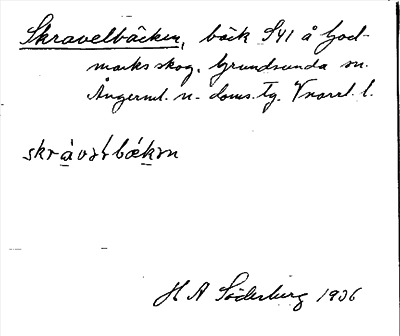 Skravelbäcken, bäck S41 å God-
marks skog. Grundsunda sn.
Ångerml. n. doms. tg. Vnorrl. l.
skràvəlbækən
H A Söderberg 1936